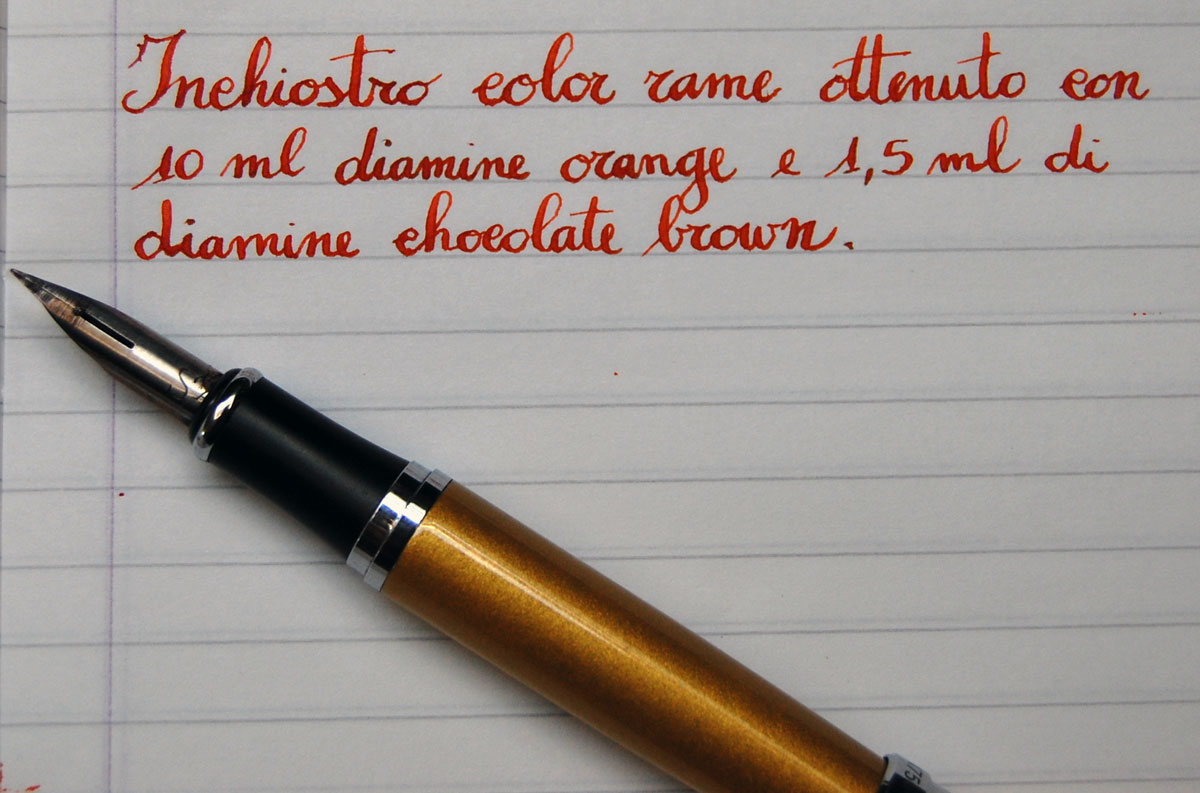 Inchiostro color rame ottenuto con
10 ml diamine orange e 1,5 ml di
diamine chocolate brown.